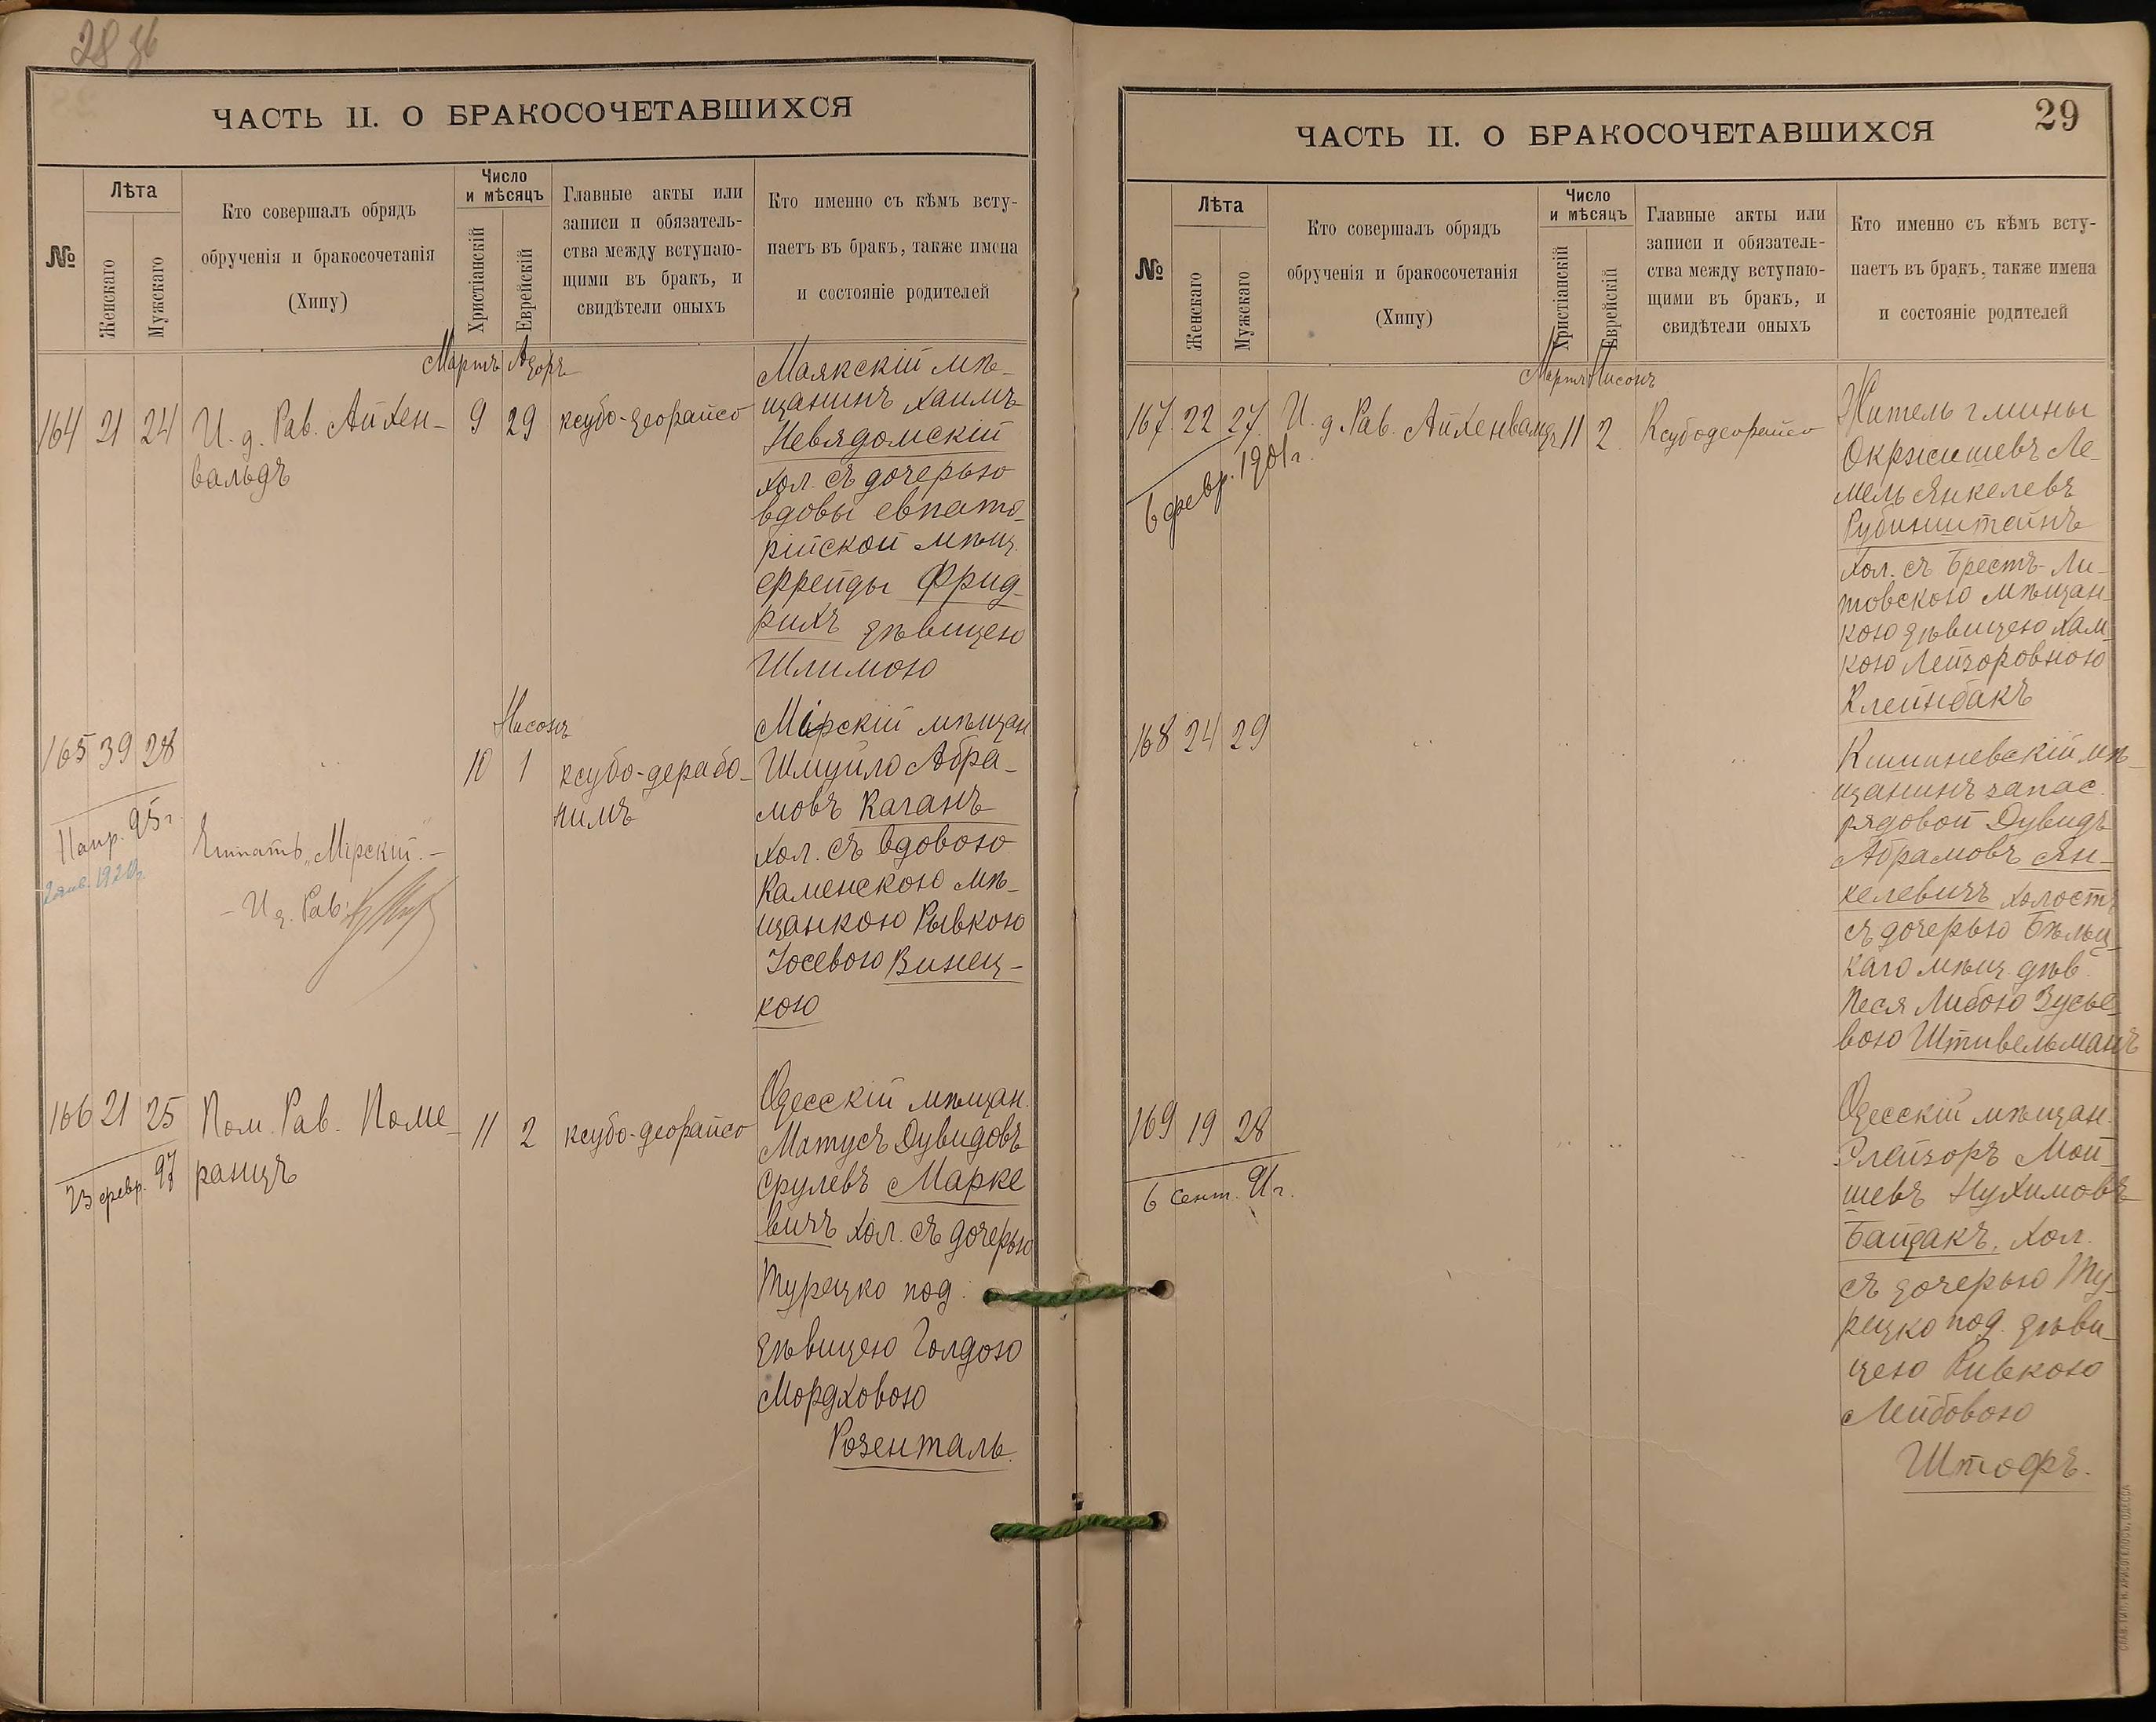 28 зб
ЧАСТЬ II. О БРАКОСОЧЕТАВШИХСЯ
№
Лѣта
Женскаго
Мужскаго
Кто совершалъ обрядъ
обрученія и бракосочетанія
(Хипу)
Число
и мѣсяцъ
Христіанскій
Еврейскій
Главные акты или
записи и обязатель-
ства между вступаю-
щими въ бракъ, и
свидѣтели оныхъ
Кто именно съ кѣмъ всту-
паетъ въ бракъ, также имена
и состояніе родителей
Мартъ Адоръ
164 21 24 И. д. Рав. Айхен-
вальдъ
9 29 ксубо-деорайсо
Маякскій мѣ-
щанинъ Хаимъ
Невядомскій
хол. съ дочерью
вдовы евпато-
рійской мѣщ.
Фрейды Фрид-
рихъ дѣвицею
Шлимою
Нисонъ
165 39 28 " 10 1 ксубо-дерабо-
нимъ
11 апр. 95 г.
2 янв. 1920 г.
Читать „Мірскій".-
- И. д. Рав.
Мірскій мѣщан
Шмуйло Абра-
мовъ Каганъ
хол. съ вдовою
Каменскою мѣ-
щанкою Рывкою
Іосевою Винец-
кою
166 21 25 Пом. Рав. Поме-
ранцъ
11 2 ксубо-деорайсо
23 февр. 97
Одесскій мѣщан.
Матусъ Дувидовъ
Срулевъ Марке
вичъ хол. съ дочерью
Турецко под.
дѣвицею Голдою
Мордховою
Розенталь.
29
ЧАСТЬ II. О БРАКОСОЧЕТАВШИХСЯ
№
Лѣта
Женскаго
Мужскаго
Кто совершалъ обрядъ
обрученія и бракосочетанія
(Хипу)
Число
и мѣсяцъ
Христіанскій
Еврейскій
Главные акты или
записи и обязатель-
ства между вступаю-
щими въ бракъ, и
свидѣтели оныхъ
Кто именно съ кѣмъ всту-
паетъ въ бракъ, также имена
и состояніе родителей
Мартъ Нисонъ
167 22 27 И. д. Рав. Айхенвальдъ 11 2 Ксубодеорайсо
6 февр. 1901 г.
Житель гмины
Окржишевъ Ле-
мель Янкелевъ
Рубинштейнъ
хол. съ Брестъ-Ли-
товскою мѣщан-
кою дѣвицею Хам-
кою Лейзоровною
Клейнбакъ
168 24 29 " " " "
Кишиневскій мѣ-
щанинъ запас.
рядовой Дувидъ
Абрамовъ Ян-
келевичъ холостъ
съ дочерью Бѣльц-
каго мѣщ. дѣв.
Песя Либою Зусье-
вою Штивельманъ
169 19 28 " " " "
6 Сент. 91 г.
Одесскій мѣщан.
Элейзоръ Мой-
шевъ Нухимовъ
Байдакъ, хол.
съ дочерью Ту-
рецко под. дѣви-
цею Ривкою
Лейбовою
Штофъ.